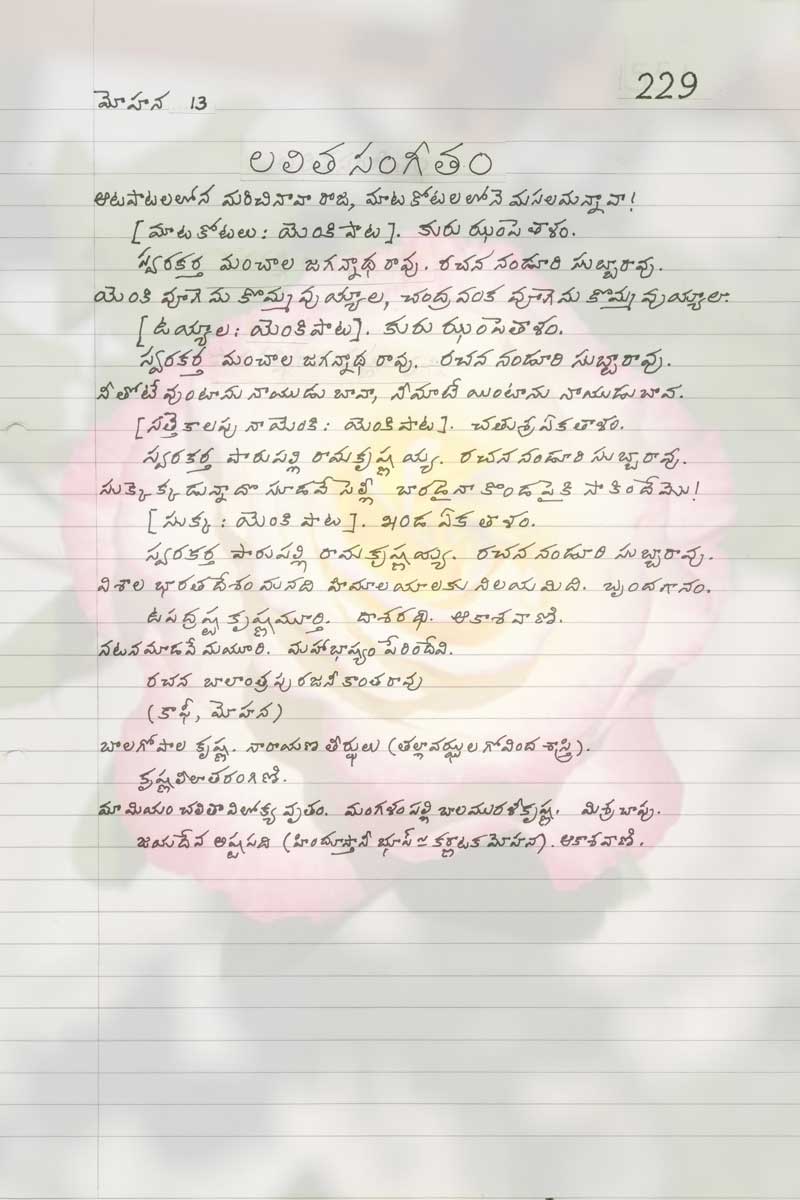 229
మోహన 13
లలిత సంగీతం
ఆటపాటలలోన మరిచినావా రాజ, మాట కోటలలోనె మసలమన్నావా!
[మాట కోటలు: యెంకి పాట]. కురు ఝంపె తాళం.
స్వరకర్త మంచాల జగన్నాథ రావు. రచన నండూరి సుబ్బారావు.
యెంకి వూగెను కొమ్మ వుయ్యాల, చంద్రవంక వూగెను కొమ్మ వుయ్యాల.
[ఉయ్యాల: యెంకి పాట]. కురు ఝంపెతాళం.
స్వరకర్త మంచాల జగన్నాథ రావు. రచన నండూరి సుబ్బారావు.
నీతోటే వుంటాను నాయుడు బావా, నీమాటే యింటాను నాయుడుబావ.
[సత్తెకాలపు నాయెంకి: యెంకిపాట]. చతుశ్ర ఏక తాళం.
స్వరకర్త పారుపల్లి రామకృష్ణయ్య. రచన నండూరి సుబ్బారావు.
సుక్కెక్కడున్నాదొ సూడవే సెల్లీ బారడైనా కొండపైకి సాకిందేమొ!
[సుక్క: యెంకి పాట]. ఖండ ఏక తాళం.
స్వరకర్త పారుపల్లి రామకృష్ణయ్య. రచన నండూరి సుబ్బారావు.
విశాల భారతదేశం మనది హిమాలయాలకు నిలయమిది. బృందగానం.
ఉపద్రష్ట కృష్ణమూర్తి. దాశరథి. ఆకాశవాణి.
నటనమాడవే మయూరి. మహాభాష్యం పేరిందేవి.
రచన బాలాంత్రపు రజనీకాంతరావు
(కాఫీ, మోహన)
బాలగోపాల కృష్ణ. నారాయణ తీర్థులు (తల్లావర్ఝుల గోవింద శాస్త్రి).
కృష్ణలీలాతరంగిణి.
మామియం చలితా విలోక్య వృతం. మంగళంపల్లి బాలమురళీకృష్ణ. మిశ్రచాపు.
జయదేవ అష్టపది (హిందూస్తానీ భూప్ = కర్ణాటక మోహన). ఆకాశవాణి.